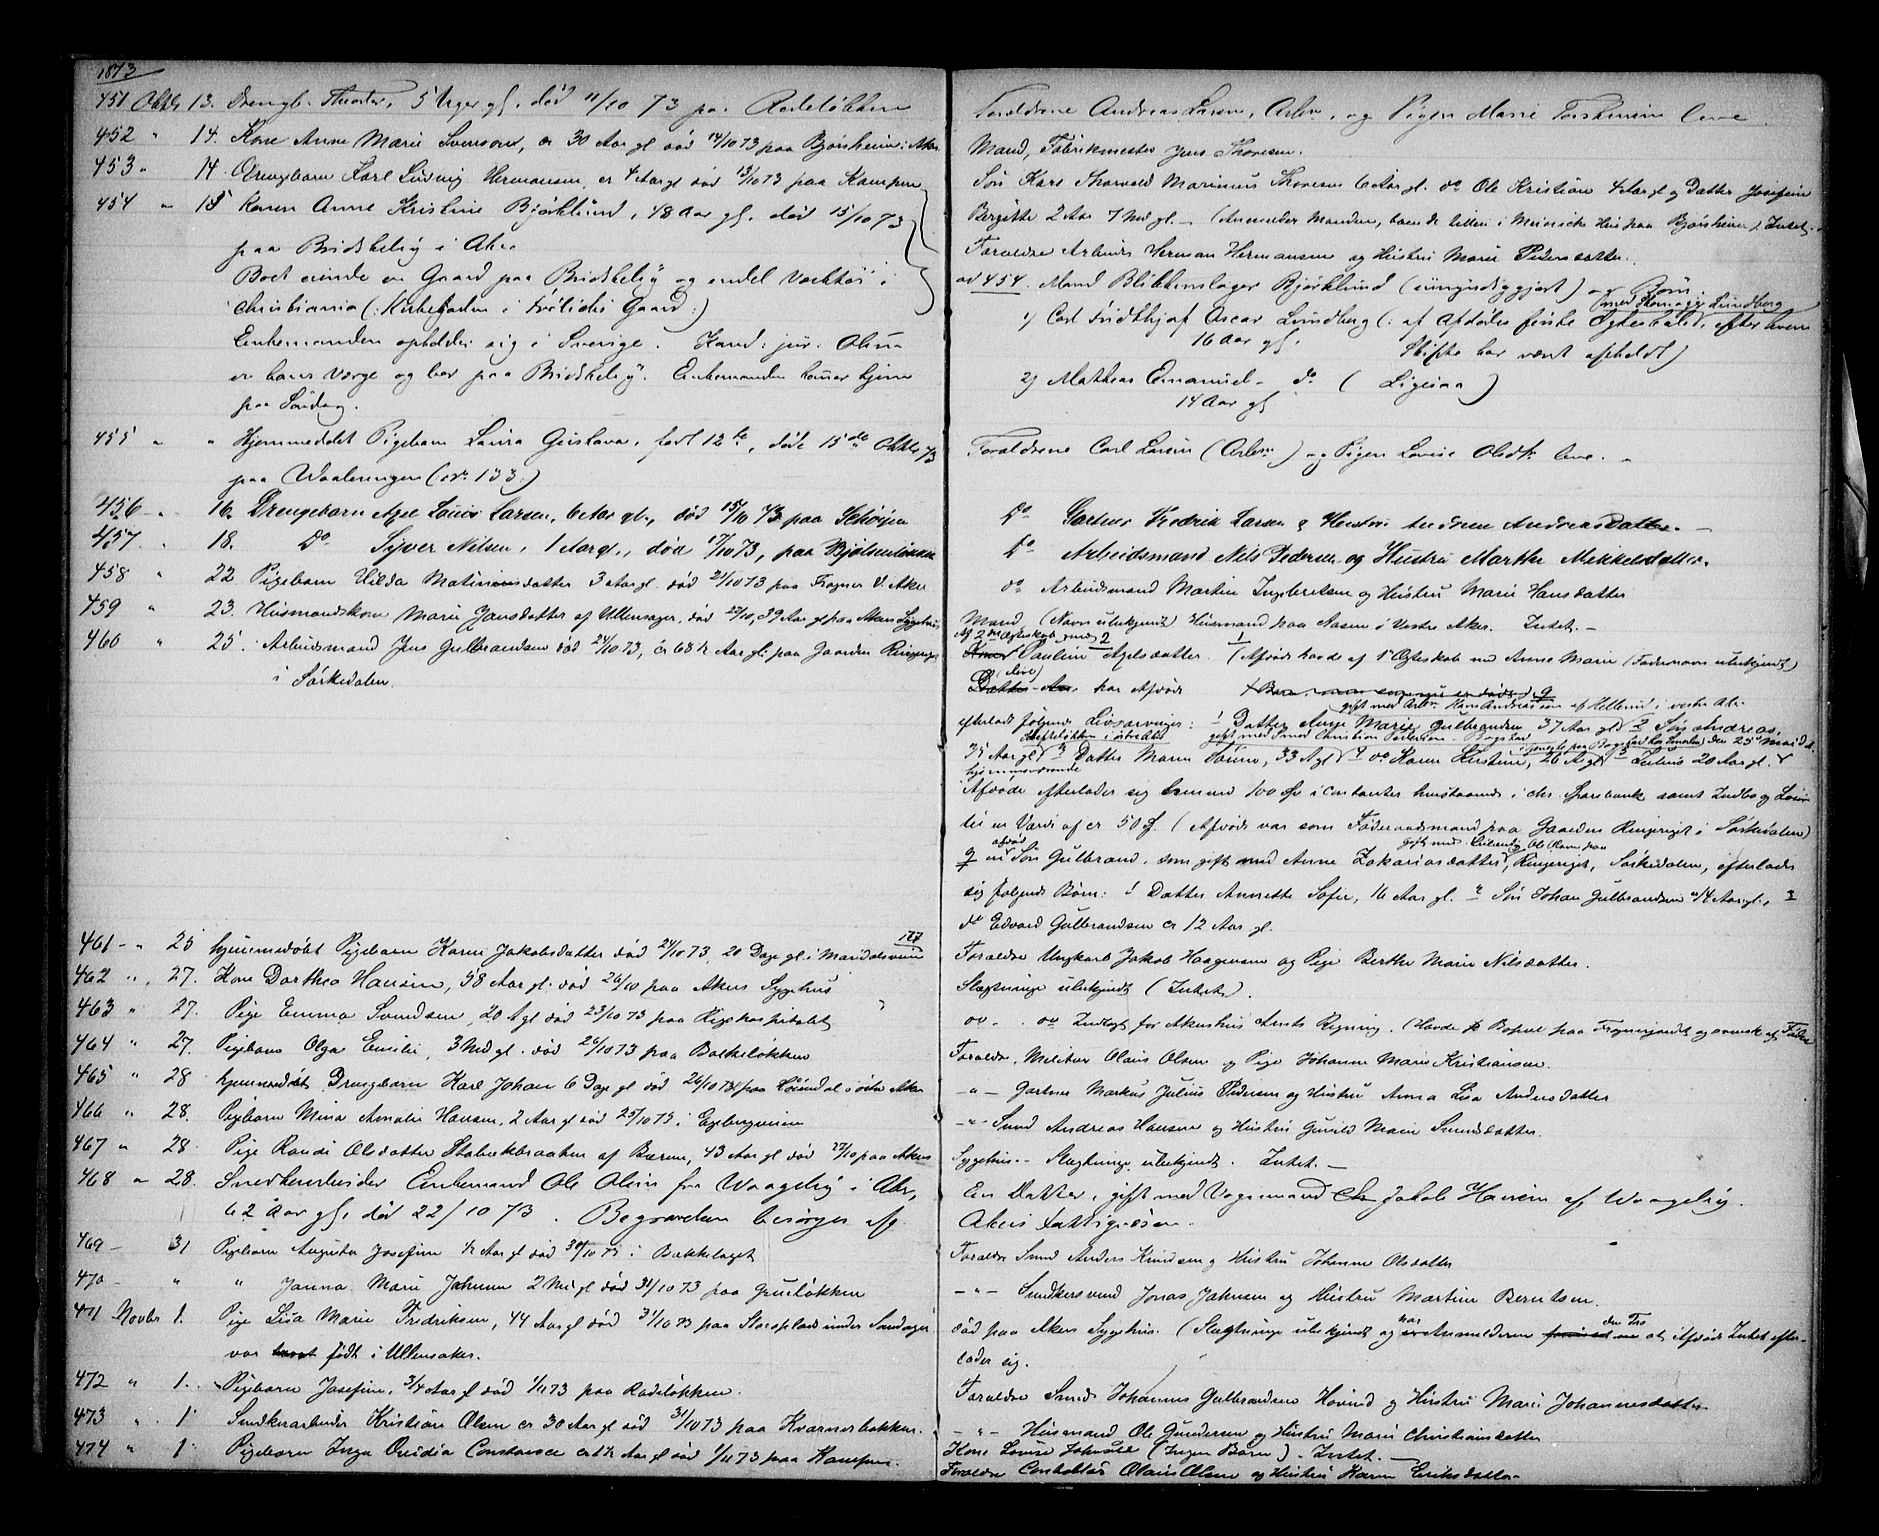 1873
451 Oktbr 13. Drengb. Theodor, 5 Uger gl. død 11/10 73 paa Rodeløkken
452 " 14. Kone Anne Marie Svensen, er 30 Aar gl død 14/10 73 paa Bjørsheim i Aker
453 " 14. Drengebarn Karl Ludvig Hermansen, er 4 Aar gl død 13/10 73 paa Kampen
454 " 15 Konen Anne Kristine Bjørklund, 48 Aar gl. død 15/10 73
paa Bridskeby i Aker
Boet eiende en Gaard paa Bridskeby og endel Værktøi i
Christiania (: Kirkegaden i Frølichs Gaard :)
Enkemanden opholder sig i Sverige. Kand: jur. Olsen
er hans Værge og bor paa Bridskeby. Enkemanden kommer hjem
paa Søndag.
455 " " Hjemmedøbt Pigebarn Laura Gustava, født 12te, død 15de Oktbr 73
paa Waaleringen (No 133.)
456 " 16. Drengebarn Axel Louis Larsen, 6 Aar gl., død 15/10 73 paa Schøyen
457 " 18. Do Syver Nilsen, 1 Aar gl., død 17/10 73, paa Bjølsenløkken
458 " 22 Pigebarn Hilda Matinusdatter 3 Aar gl. død 21/10 73 paa Frogner V. Aker
459 " 23. Husmandskone Marie Jansdatter af Ullensager, død 22/10, 39 Aar gl paa Akers Sygehus
460 " 25. Arbeidsmand Jens Gulbrandsen død 24/10 73, er 68 1/2 Aar gl. paa Gaarden Ringeriget
i Sørkedalen
461 " 25 hjemmedøbt Pigebarn Karen Jakobsdatter død 24/10 73, 20 Dage gl. i Maridalsveien 177
462 " 27. Kone Dorthea Hansen, 58 Aar gl. død 26/10 paa Akers Sygehus
463 " 27. Pige Emma Svendsen, 20 A gl død 23/10 73 paa Rigshospitalet
464 " 27. Pigebarn Olga Emilie, 3 Md gl. død 26/10 73 paa Bakkeløkken
465 " 28 hjemmedøbt Drengbarn Karl Johan 6 Dage gl død 26/10 73 paa Høiendal i østre Aker
466 " 28. Pigebarn Mina Amalie Hansen, 2 Aar gl død 25/10 73 i Egebergveien
467 " 28. Pige Randi Olsdatter Stabekbraaten af Bærum, 43 Aar gl død 27/10 paa Akers
468 " 28. Snedkerarbeider Enkemand Ole Olsen fra Waageby i Aker,
62 Aar gl, død 22/10 73. Begravelsen besørges af
469 - 31 Pigebarn Augusta Josefine 1/2 Aar gl død 30/10 73 i Bakkelaget
470 - " " Janna Marie Jahnsen 2 Md gl død 31/10 73 paa Grueløkken
471 Novbr 1. Pige Lisa Marie Fredriksen, 44 Aar gl død 31/10 73 paa Storoplads under Sandager
var født i Ullensaker.
472 " 1. Pigebarn Josefine, 3/4 Aar gl død 1/11 73 paa Rodeløkken.
473 " 1 Snedkerarbeider Kristian Olsen er 30 Aar gl død 31/10 73 paa Kværnerbakken.
474 " 1 Pigebarn Inga Ovidia Constance er 1 1/2 Aar gl død 1/11 73 paa Kampen.
Forældrene Andreas Larsen, Arbm, og Pigen Marie Torstensen leve.
Mand, Fabrikmester Jens Thoresen.
Søn Karl Thorvald Marinius Thoresen 6 Aar gl. do Ole Kristian 4 Aar gl og Datter Josefine
Bergitte 2 Aar 7 Md gl. - (Anmelder Manden, boende i Huus paa Bjørsheim). Intet.
Forældre Arbeider Herman Hermansen og Hustru Marie Pedersdatter.
ad 454. Mand Blikkenslager Bjørklund (umyndiggjort) og Børn
1) Carl Fridthjof Oscar Lundberg (: af Afdødes første Ægteskab, med Lundberg efter hvem
16 Aar gl. Skifte har været afholdt)
2) Mathias Emanuel - do (Ligesaa)
14 Aar gl
Forældrene Carl Larsen (Arbm) og Pigen Lovise Olsdtr. leve.
Do Gartner Fredrik Larsen & Hustru Andrea Andreasdatter. -
Do Arbeidsmand Nils Pedersen og Hustru Marthe Mikkelsdatter.
do Arbeidsmand Martin Ingebretsen og Hustru Marie Hansdatter
Mand (Navn ubekjendt) Husmand paa Aasen i Vestre Aker. Intet. -
Af 2den Ægteskab med
Pauline Axelsdatter. (Afdøde havde af 1ste Ægteskab med Anne Marie (Fadernavn ubekjendt)
har Afdøde
gift med Arbm Hans Andreassen af Hellerud i vestre Aker
efterladt følgende Livsarvinger: 1 Datter Anne Marie Gulbrandsen 37 Aar gl 2 Søn Andreas,
gift med Smed Christian Pedersen Bogstad
35 Aar gl 3 Datter Maren Sørine, 33 A gl 4 do Karen Kirstine, 26 A gl 5 Julius 20 Aar gl.
hjemmeværende
Afdøde efterlader sig 100 Spd i contanter henstaaende i Chr. Sparebank samt Indbo og Løsøre
til en Værdi af cr 50 Spd. (Afdøde var som Føderaadsmand paa Gaarden Ringeriget i Sørkedalen)
9 en afdød Søn Gulbrand, som gift med Anne Zakariasdatter, Ringeriget, Sørkedalen, efterlader
sig følgende Børn: 1 Datter Annette Sofie, 16 Aar gl. 2 Søn Johan Gulbrandsen 14 Aar gl., 3
do Edvard Gulbrandsen er 12 Aar gl.
Forældre Ungkarl Jakob Haagensen og Pige Berthe Marie Nilsdatter.
Slægtninge ubekjendt (Intet).
do - do Indlagt for Akershus Amts Regning. (Havde Bopæl paa
Forældre, Militær Olaus Olsen og Pige Johanne Marie Kristiansen.
- " - Gartner Markus Julius Pedersen og Hustru Anna Lisa Andersdatter
- " - Smed Andreas Hansen og Hustru Gunild Marie Svendsdatter.
Sygehus. - Slægtninge ubekjendt. Intet. -
En Datter, gift med Vognmand Jakob Hansen af Waageby.
Akers Fattigvæsen.
Forældre Smed Anders Knudsen og Hustru Johanne Olsdatter
- " - Snedkersvend Jonas Jahnsen og Hustru Martine Berntsen.
død paa Akers Sygehus. (Slægtninge ubekjendt og har Anmelderen den Tro at Afdøde Intet efter-
lader sig.
Forældre Smed Johannes Gulbrandsen Hovind og Hustru Marie Johannesdatter
- " - Husmand Ole Gundersen og Hustru Marie Christiansdatter
Kone Lovise (Ingen Børn). Intet. -
Forældre Olaus Olsen og Hustru Karen Eriksdatter -